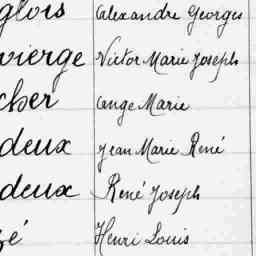 glois Alexandre Georges
vierge Victor Marie Joseph
cher Ange Marie
deux Jean Marie René
deux René Joseph
zé Henri Louis